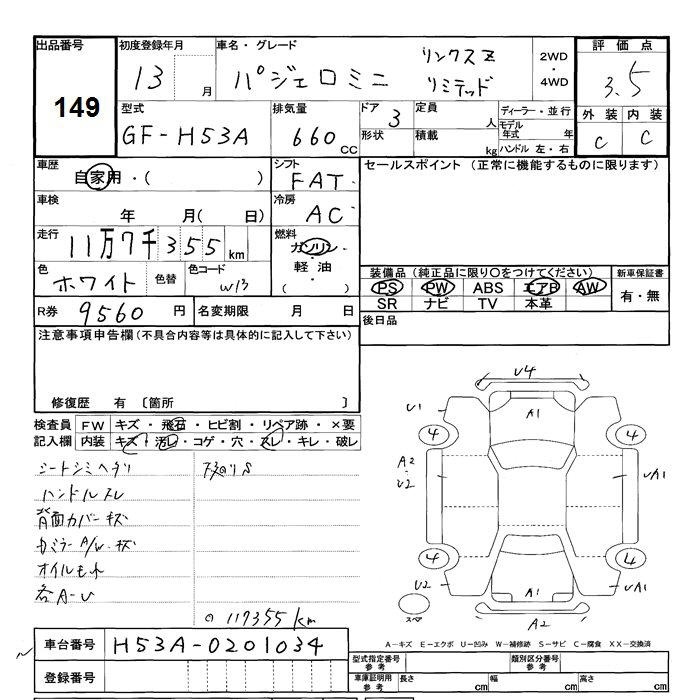 出品番号 初度登録年月 車名・グレード 評価点
149
13 月 パジェロミニ リンクスZ リミテッド 2WD・4WD 3.5
型式 排気量 ドア 定員 ディーラー・並行 外装 内装
GF-H53A 660 CC 3 人 モデル年式 年 C C
形状 積載 kg ハンドル 左・右
車歴 シフト セールスポイント (正常に機能するものに限ります)
自家用・( ) FAT
車検 冷房
年 月( 日) AC
走行 燃料
11万7千355 km ガソリン・
色 色替 色コード 軽油・
ホワイト W13 ( )
装備品 (純正品に限り○をつけてください) 新車保証書
PS PW ABS エアB AW 有・無
SR ナビ TV 本革
R券 9560 円 名変期限 月 日 後日品
注意事項申告欄 (不具合内容等は具体的に記入して下さい)
修復歴 有 〔箇所 〕
検査員 FW キズ・飛石・ヒビ割・リペア跡・×要
記入欄 内装 キズ・汚レ・コゲ・穴・スレ・キレ・破レ
シートシミヘタリ 下廻りS
ハンドルスレ
背面カバーキズ
カミラーA/W・キズ
オイルモレ
各A-U
117355 km
U4
U1 A1
4 4
A2 U2 UA1
4 4
U2 A1 UA1
スペア A2
A-キズ E-エクボ U-凹み W-補修跡 S-サビ C-腐食 XX-交換済
車台番号 H53A-0201034
登録番号
型式指定番号 参考 類別区分番号 参考
車庫証明用 参考 長さ cm 幅 cm 高さ cm